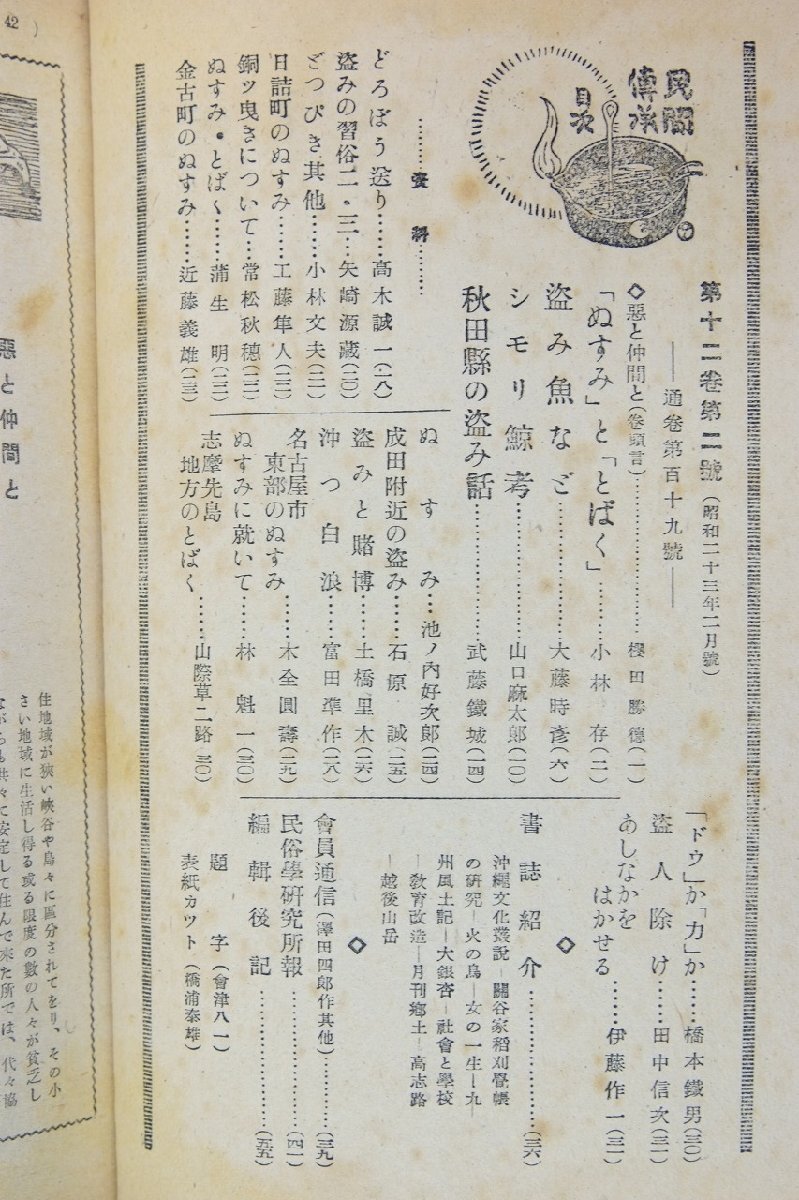 民間
傳承
目次
第十二卷第二號（昭和二十三年二月號）
――通卷第百十九號――
◇惡と仲間と（卷頭言）…………櫻田勝德（一）
「ぬすみ」と「とばく」………小林存（二）
盗み魚など…………大藤時彥（六）
シモリ鯨考…………山口麻太郎（一〇）
秋田縣の盗み話…………武藤鐵城（一四）
………資料………
どろぼう送り……高木誠一（一八）
盗みの習俗二・三…矢崎源藏（二〇）
ごつぴき其他……小林文夫（二一）
日詰町のぬすみ……工藤隼人（二二）
銅ッ曳きについて…常松秋穗（二二）
ぬすみ・とばく……蒲生明（二三）
金古町のぬすみ……近藤義雄（二三）
ぬすみ…池ノ內好次郞（二四）
成田附近の盗み……石原誠（二五）
盗みと賭博……土橋里木（二六）
沖つ白浪……富田準作（二八）
名古屋市
東部のぬすみ……木全圓壽（二九）
ぬすみに就いて……林魁一（三〇）
志摩先島
地方のとばく……山際草二路（三〇）
「ドウ」か「力」か……橋本鐵男（三〇）
盗人除け……田中信次（三一）
あしなかを
はかせる……伊藤作一（三一）
◇
書誌紹介…………（三六）
沖繩文化叢說－關谷家稻刈疊帳
の研究－火の鳥－女の一生－九
州風土記－大銀杏－社會と學校
－敎育改造－月刊鄕土－高志路
－越後山岳
◇
會員通信（澤田四郎作其他）…………（三九）
民俗學硏究所報…………（四一）
編輯後記…………（五五）
題字（會津八一）
表紙カット（橋浦泰雄）
42
惡と仲間と
住地域が狹い峽谷や島々に區分されてをり、その小
さい地域に生活し得る或る限度の數の人々が貧乏し
ながらも共々に安定して住んで來た所では、代々協